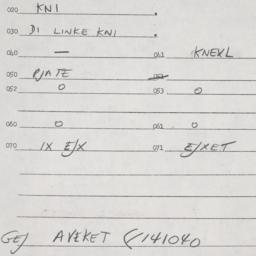 020 KNI
030 DI LINKE KNI
040 — 041 KNEKL
050 PJATE 052
052 0 053 0
060 0 061 0
070 IX EJX 071 EJXET
GEJ AVEKET 141040